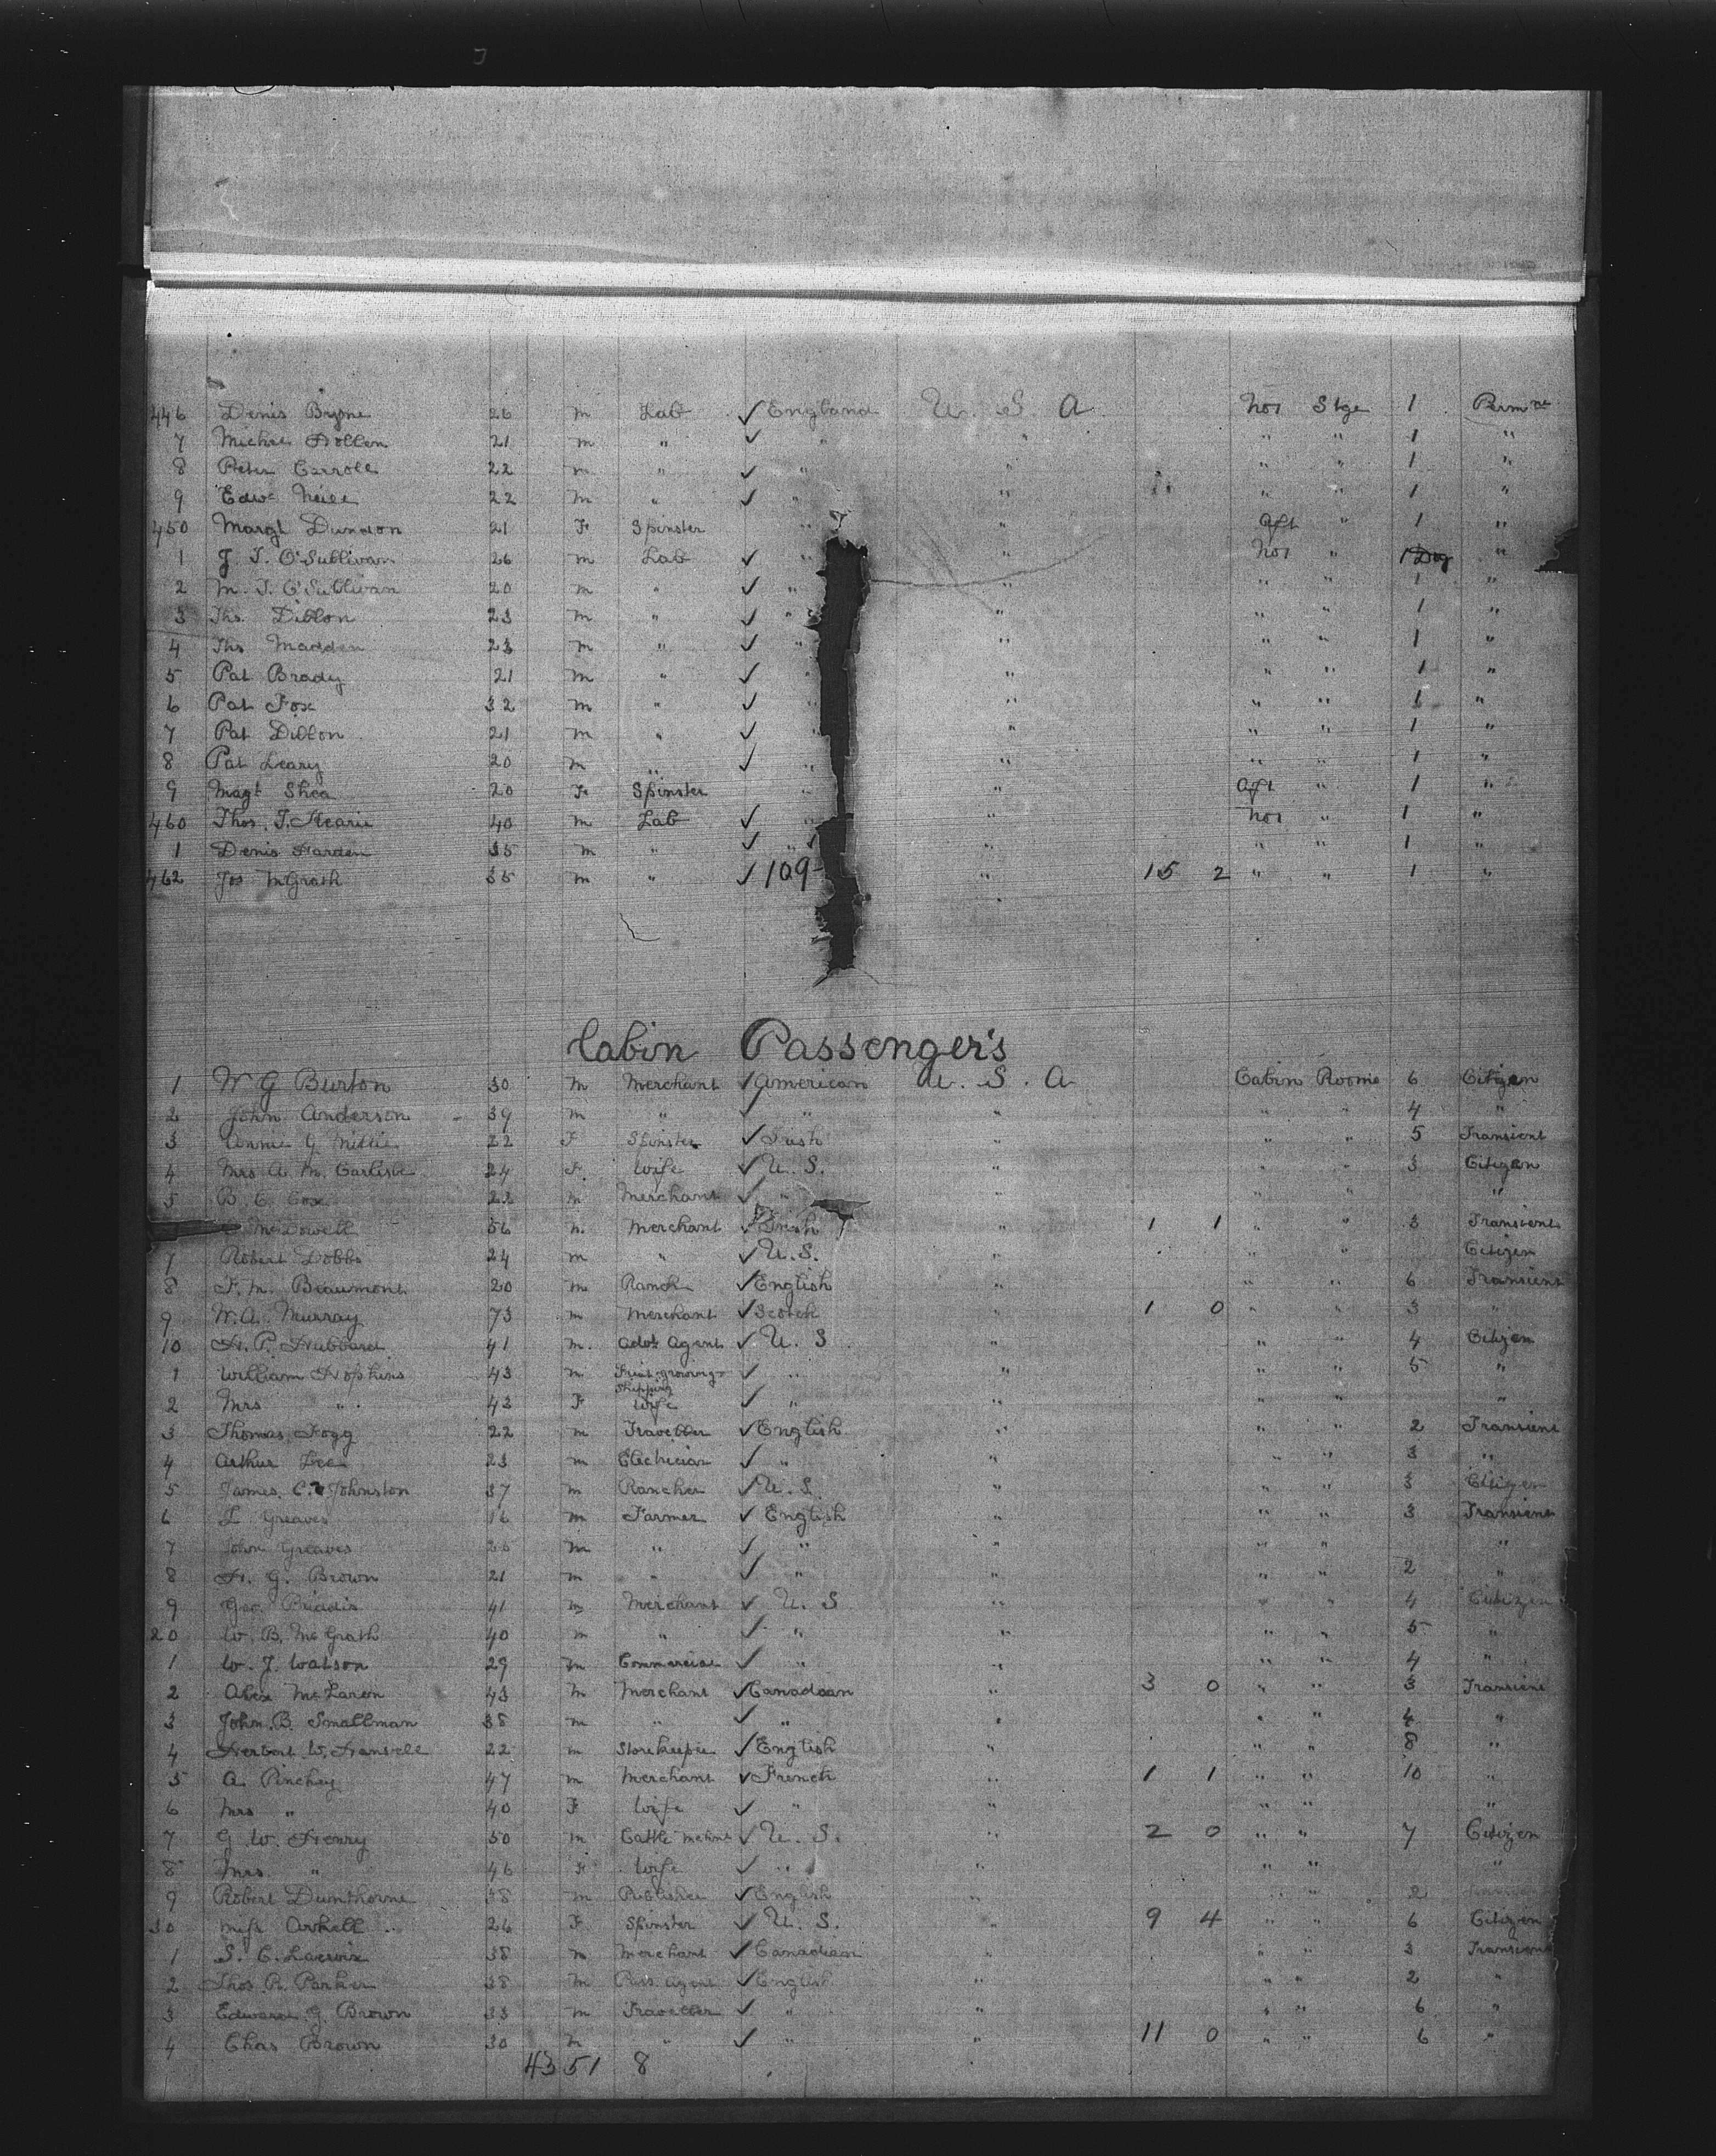 446 Denis Bryne 26 m Lab ✓ England U. S. A No1 Stge 1 Perm nt
7 Michae 21 m " ✓ " " " " 1 "
8 Peter Carroll 22 m " ✓ " " " " 1 "
9 Edwd Neill 22 m " ✓ " " " " 1 "
450 Margt Dundon 21 F Spinster " " Aft " 1 "
1 J T. O'Sullivan 26 m Lab ✓ " " No1 " 1 "
2 M. J. O'Sullivan 20 m " ✓ " " " " 1 "
3 Ths. Dillon 23 m " ✓ " " " " 1 "
4 Ths Madden 23 m " ✓ " " " " 1 "
5 Pat Brady 21 m " ✓ " " " " 1 "
6 Pat Fox 32 m " ✓ " " " " 1 "
7 Pat Dillon 21 m " ✓ " " " " 1 "
8 Pat Leary 20 m " ✓ " " " " 1 "
9 Magt Shea 20 F Spinster " " Aft " 1 "
460 Thos. J. 40 m Lab ✓ " " No1 " 1 "
1 Denis Harden 35 m " ✓ " " " " 1 "
462 Jos McGrath 35 m " ✓ 109 " 15 2 " " 1 "
Cabin Passenger's
1 W G Burton 30 m Merchant ✓ American U. S. A Cabin Rooms 6 Citizen
2 John Anderson 39 m " ✓ " " " " 4 "
3 Annie G 22 F Spinster ✓ Irish " " " 5 Transient
4 Mrs A. M. Carlisle 24 F. Wife ✓ U. S. " " " 3 Citizen
5 B. C. Cox 22 m Merchant ✓ " " " " "
McDowell 56 m. Merchant ✓ Irish " 1 1 " " 3 Transient
7 Robert Dobbs 24 m " ✓ U. S. " " Citizen
8 F. M. Beaumont 20 m Ranch ✓ English " " " 6 Transient
9 W. A. Murray 73 m Merchant ✓ Scotch " 1 0 " " 3 "
10 H. P. Hubbard 41 m. Advt Agent ✓ U. S " " " 4 Citizen
1 William Hopkins 43 m Fruit growing ✓ " " " " 5 "
shipping
2 Mrs " 43 F Wife ✓ " " " " "
3 Thomas Fogg 22 m Traveller ✓ English " " " 2 Transient
4 Arthur Lee 23 m Electrician ✓ " " " " 3 "
5 James C. Johnston 37 m Rancher ✓ U. S. " " " 3 Citizen
6 L Greaves 16 m Farmer ✓ English " " " 3 Transient
7 John Greaves 26 m " ✓ " " " " "
8 H. G. Brown 21 m " ✓ " " " " 2 "
9 Geo. 41 m Merchant ✓ U. S " " " 4 Citizen
20 W. B. McGrath 40 m " ✓ " " " " 5 "
1 W. J. Watson 29 m Commercial ✓ " " " " 4 "
2 Alex McLaren 43 m Merchant ✓ Canadian " 3 0 " " 3 Transient
3 John B. Smallman 38 m " ✓ " " " " 4 "
4 Herbert W. 22 m Storekeeper ✓ English " " " 8 "
5 A. Pinchey 47 m Merchant ✓ French " 1 1 " " 10 "
6 Mrs " 40 F Wife ✓ " " " " "
7 G. W. Henry 50 m Cattle Mchnt ✓ U. S. " 2 0 " " 7 Citizen
8 Mrs. " 46 F Wife ✓ " " " " "
9 Robert Dunthorne 38 m Publisher ✓ English " " " 2
30 Miss Arkell 26 F Spinster ✓ U. S. " 9 4 " " 6 Citizen
1 S. C. Lacroix 38 m Merchant ✓ Canadian " " " 3 Transient
2 Thos. R. Parker 38 m Pass. Agent ✓ English " " " 2 "
3 Edward G. Brown 33 m Traveller ✓ " " " " 6 "
4 Chas Brown 30 m " ✓ " " 11 0 " " 6 "
43 51 8